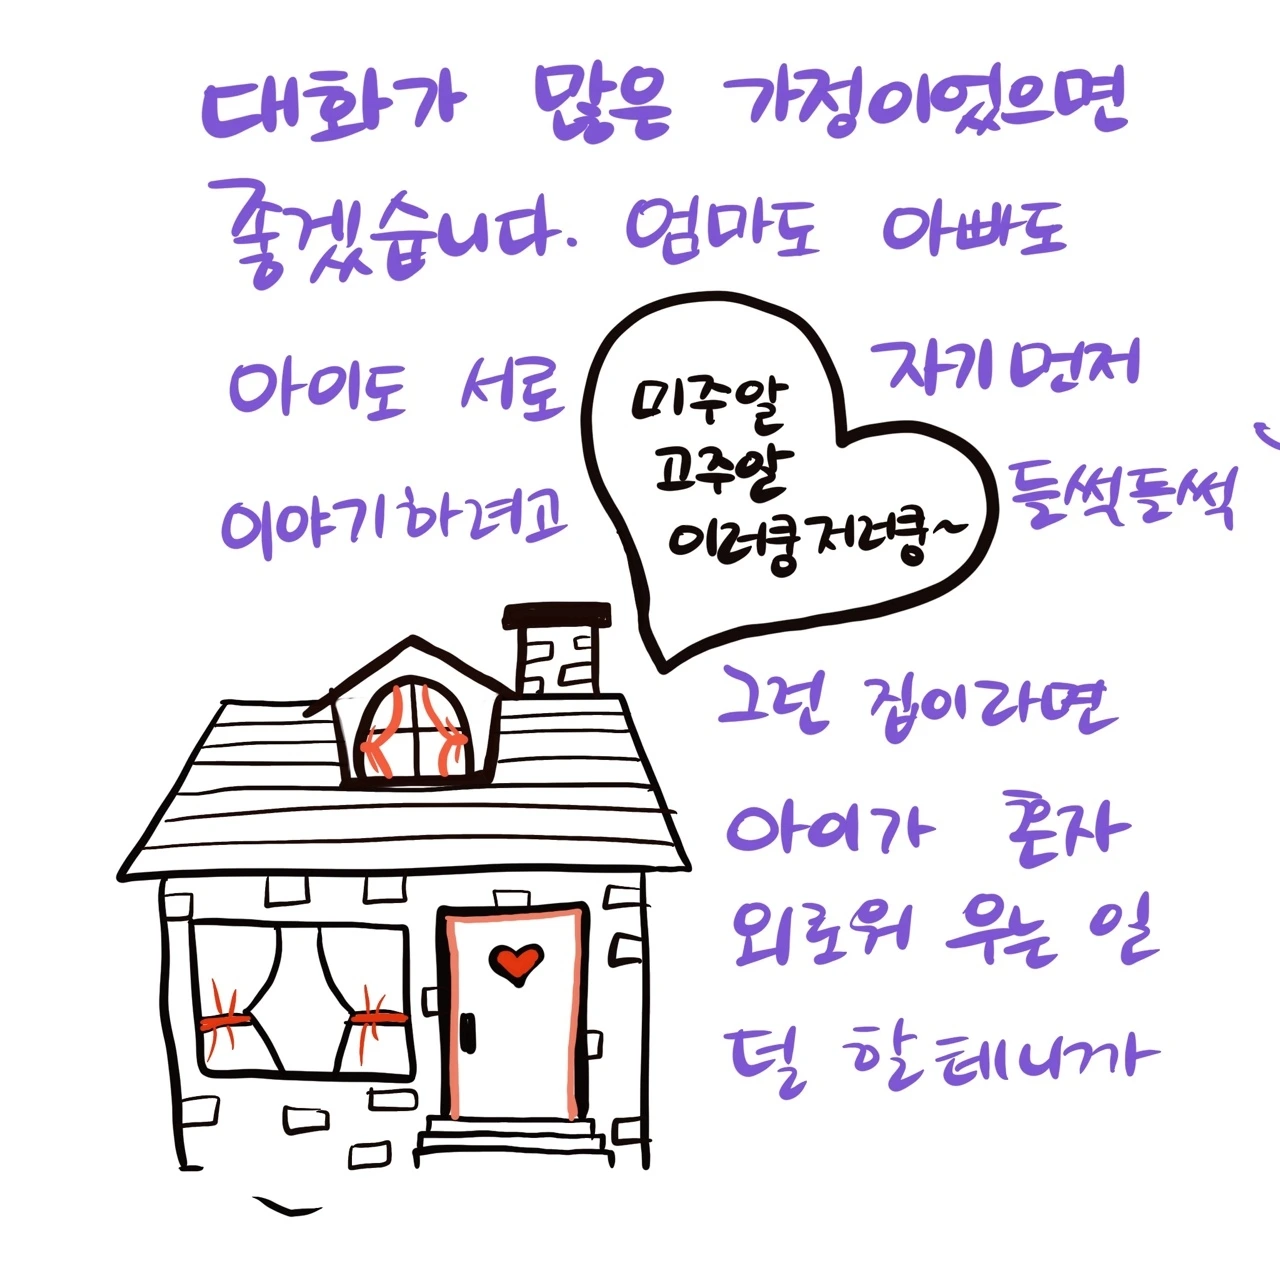 대화가 많은 가정이었으면
좋겠습니다. 엄마도 아빠도
아이도 서로 자기먼저
이야기하려고 들썩들썩
미주알
고주알
이러쿵저러쿵~
그런 집이라면
아이가 혼자
외로워 우는 일
덜 할테니까